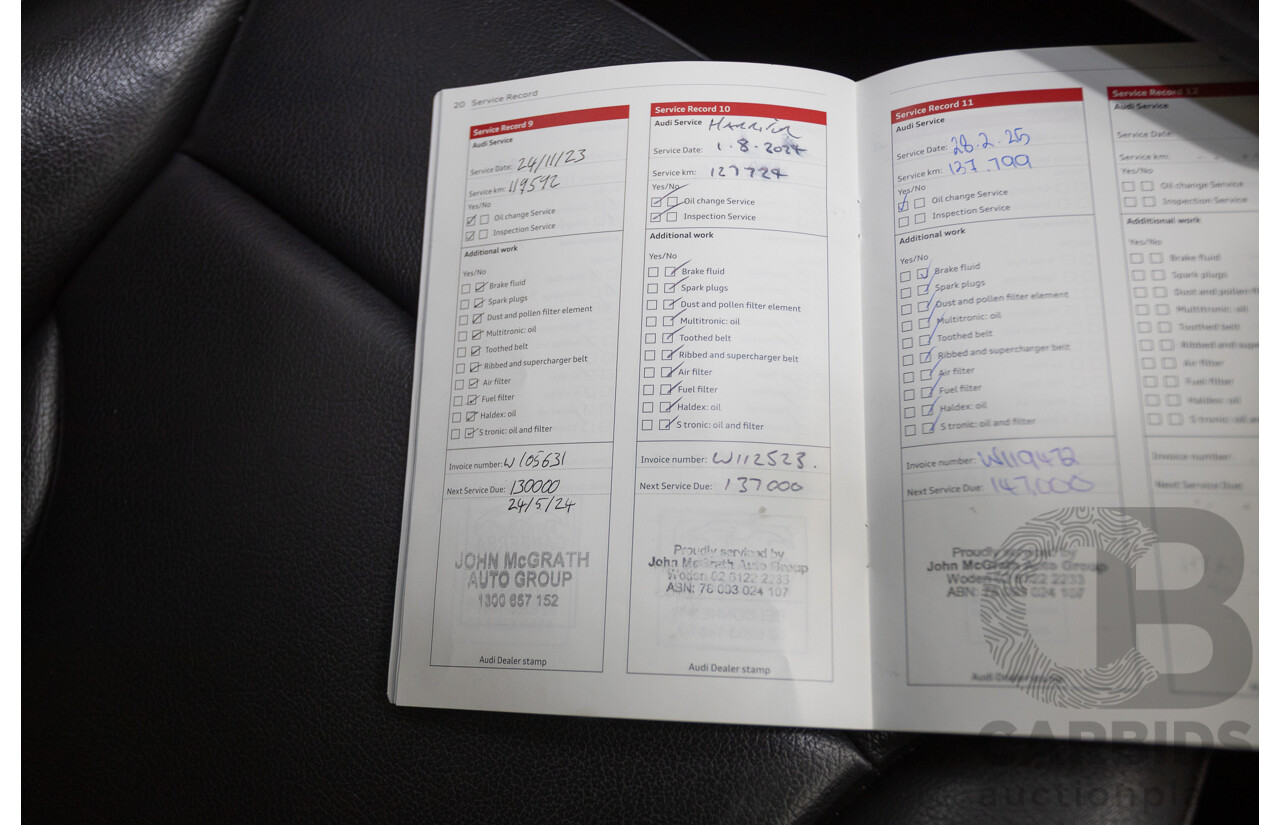 20 Service Record
Service Record 9
Audi Service
Service Date: 24/11/23
Service km: 119592
Yes/No
Oil change Service
Inspection Service
Additional work
Yes/No
Brake fluid
Spark plugs
Dust and pollen filter element
Multitronic: oil
Toothed belt
Ribbed and supercharger belt
Air filter
Fuel filter
Haldex: oil
S tronic: oil and filter
Invoice number: W105631
Next Service Due: 130000
24/5/24
JOHN McGRATH
AUTO GROUP
1300 657 152
Audi Dealer stamp
Service Record 10
Audi Service
Service Date: 1.8.2024
Service km: 127724
Yes/No
Oil change Service
Inspection Service
Additional work
Yes/No
Brake fluid
Spark plugs
Dust and pollen filter element
Multitronic: oil
Toothed belt
Ribbed and supercharger belt
Air filter
Fuel filter
Haldex: oil
S tronic: oil and filter
Invoice number: W112523.
Next Service Due: 137000
Proudly serviced by
John McGrath Auto Group
Woden 02 6122 2233
ABN: 76 003 024 107
Audi Dealer stamp
Service Record 11
Audi Service
Service Date: 28.2.25
Service km: 137.799
Yes/No
Oil change Service
Inspection Service
Additional work
Yes/No
Brake fluid
Spark plugs
Dust and pollen filter element
Multitronic: oil
Toothed belt
Ribbed and supercharger belt
Air filter
Fuel filter
Haldex: oil
S tronic: oil and filter
Invoice number: W119472
Next Service Due: 147,000
Proudly serviced by
John McGrath Auto Group
Woden 02 6122 2233
ABN: 76 003 024 107
Audi Dealer stamp
Service Record 12
Audi Service
Service Date:
Service km:
Yes/No
Oil change Service
Inspection Service
Additional work
Yes/No
Brake fluid
Spark plugs
Dust and pollen filter
Multitronic: oil
Toothed belt
Ribbed and supe
Air filter
Fuel filter
Haldex: oil
S tronic: oil and
Invoice number:
Next Service Due:
CARBIDS
auctionpl